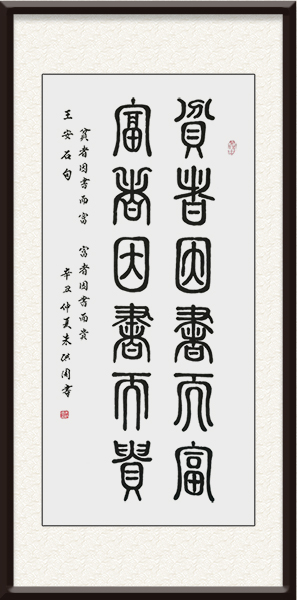 貧者因書而富
富者因書而貴
貧者因書而富 富者因書而貴
王安石句 辛丑仲夏朱